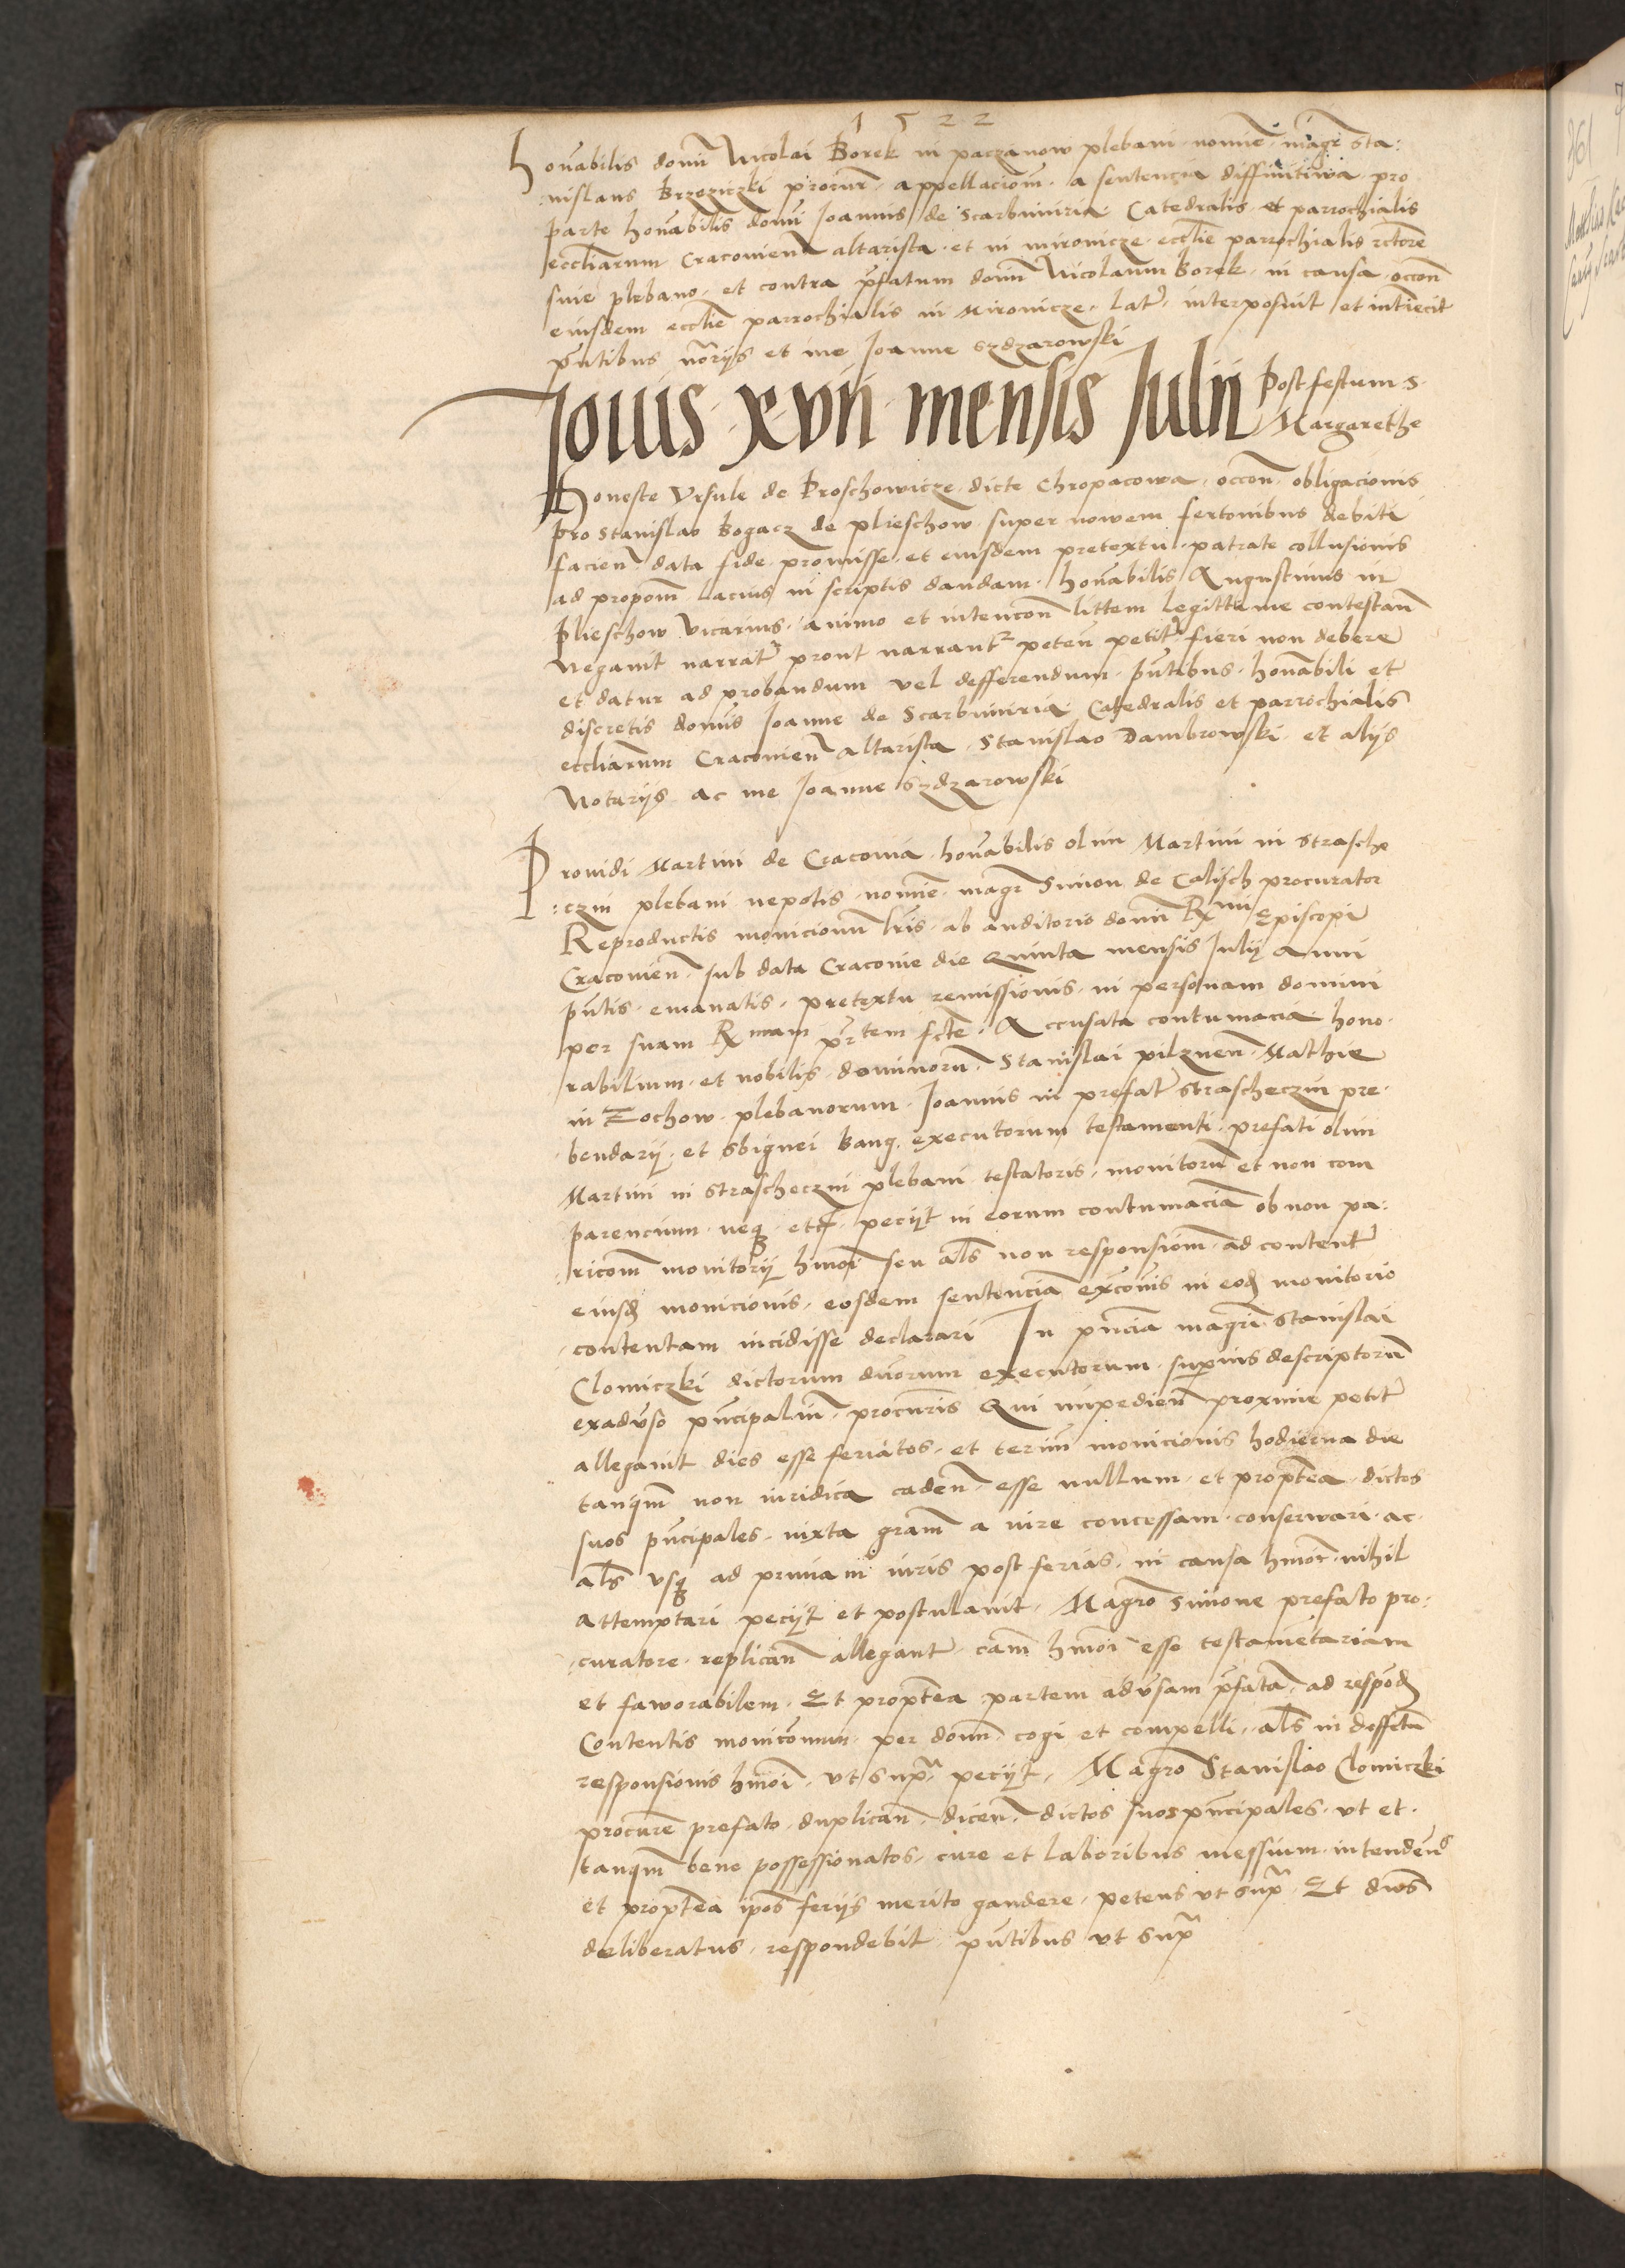 1522
Honabilis domi Nicolai Borek in paczanow plebani nomine magr Sta:
:nislaus Brzeziczki procur appellacionem a sentencia diffinitiwa pro
parte honabilis domi Joannis de Scarbimiria Catedralis et parrochialis
eccliarum Cracovien altarista et in mironicze ecclie parrochialis rctore
sive plebano et contra pfatum domin Nicolaum Borek in causa occon
eiusdem ecclie parrochialis in Mironicze lat interposuit et intiecit
pntibus noriis et me Joanne Sydzarowski
Jovis xvii mensis Julii Post festum S.
Margarethe
Honeste Ursule de Proschowicze dicte Chropacowa occon obligacionis
pro Stanislao Bogacz de plieschow super nowem fertonibus debiti
facien data fide promisse et eiusdem pretextu patrate collusionis
ad propom lacius in scriptis dandam honabilis Augustinus in
Plieschow Vicarius animo et intencon littem legittime contestan
Negavit narrat prout narrant peten petit fieri non debere
et datur ad probandum vel defferendum pntibus honabili et
discretis domis Joanne de Scarbimiria Catedralis et parrochialis
eccliarum Cracovien altarista Stanislao Dambrowski et aliis
Notariis ac me Joanne Sydzarowski
Providi Martini de Cracovia honabilis olim Martini in Strasche
:czin plebani nepotis nomine magr Simon de Calisch procurator
Reproductis monicionum lris ab auditorio domini Rxmi Episcopi
Cracovien sub data Cracovie die Quinta mensis Julii Anni
pntis emanatis pretextu remissionis in personam domini
per suam Rxmam prtem fcte Accusata contumacia hono
rabilium et nobilis dominorum Stanislai pilznen Mathie
in Zochow plebanorum Joannis in prefat Strascheczin pre
bendarii et Sbignei Bang executorum testamenti prefati olim
Martini in Strascheczin plebani testatoris monitorum et non com
parencium neq etc peciit in eorum contumaciam ob non pa:
ricom monitorii hmoi seu als non responsiom ad content
eiusd monicionis eosdem sentenciam excois in eod monitorio
contentam incidisse declarari In pncia magri Stanislai
Clomiczki dictorum duorum executorum superius descriptorum
exadverso pncipalium procuris Qui impedien proxime petit
allegavit dies esse feriatos et terim monicionis hodierna die
tanqm non iuridica caden esse nullum et proptea dictos
suos pncipales iuxta gram a iure concessam conserwari ac
als usq ad primam iuris post ferias in causa hmoi nihil
attemptari peciit et postulavit Magro Simone prefato pro:
curatore replican allegant cam hmoi esse testametariam
et faworabilem Et proptea partem adversam pfata ad respod
Contentis moniconum per domin cogi et compelli als in deffctu
responsionis hmoi ut supra peciit Magro Stanislao Clomiczki
procure prefato duplican dicen dictos suos pncipales ut et
tanqm bene possessionatos cure et laboribus messium intendend
et proptea ipos feriis merito gaudere petens ut supra Et dius
deliberatus respondebit pntibus ut supra
361